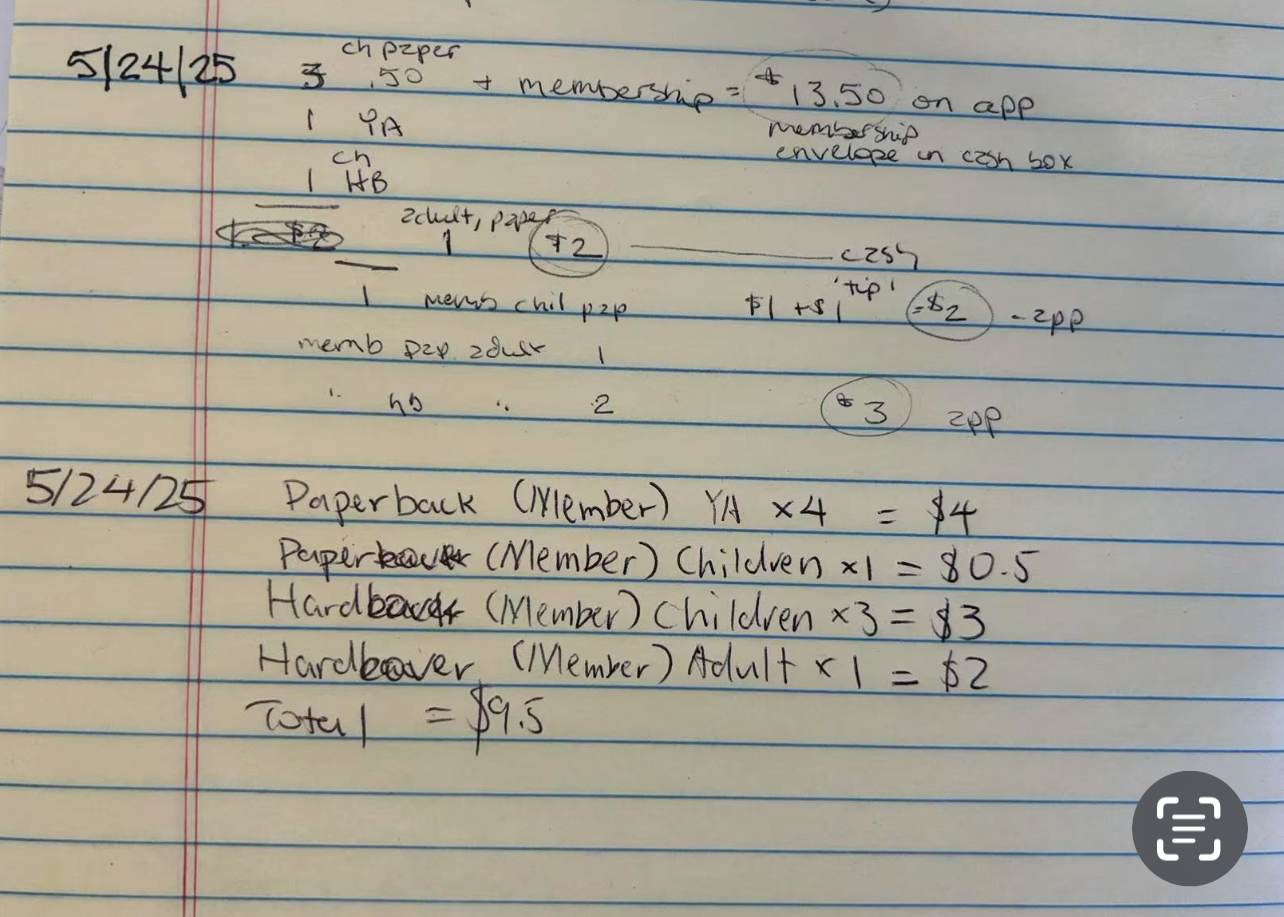 5/24/25 3 ch paper .50 + membership = $13.50 on app
1 YA membership
envelope in cash box
1 ch HB
adult, paper
1 $2 cash
1 memb chil pap $1 + $1 'tip' = $2 - app
memb pap. adult 1
" hb " 2 $3 app
5/24/25 Paperback (Member) YA x4 = $4
Paperback (Member) Children x1 = $0.5
Hardback (Member) Children x3 = $3
Hardcover (Member) Adult x 1 = $2
Total = $9.5